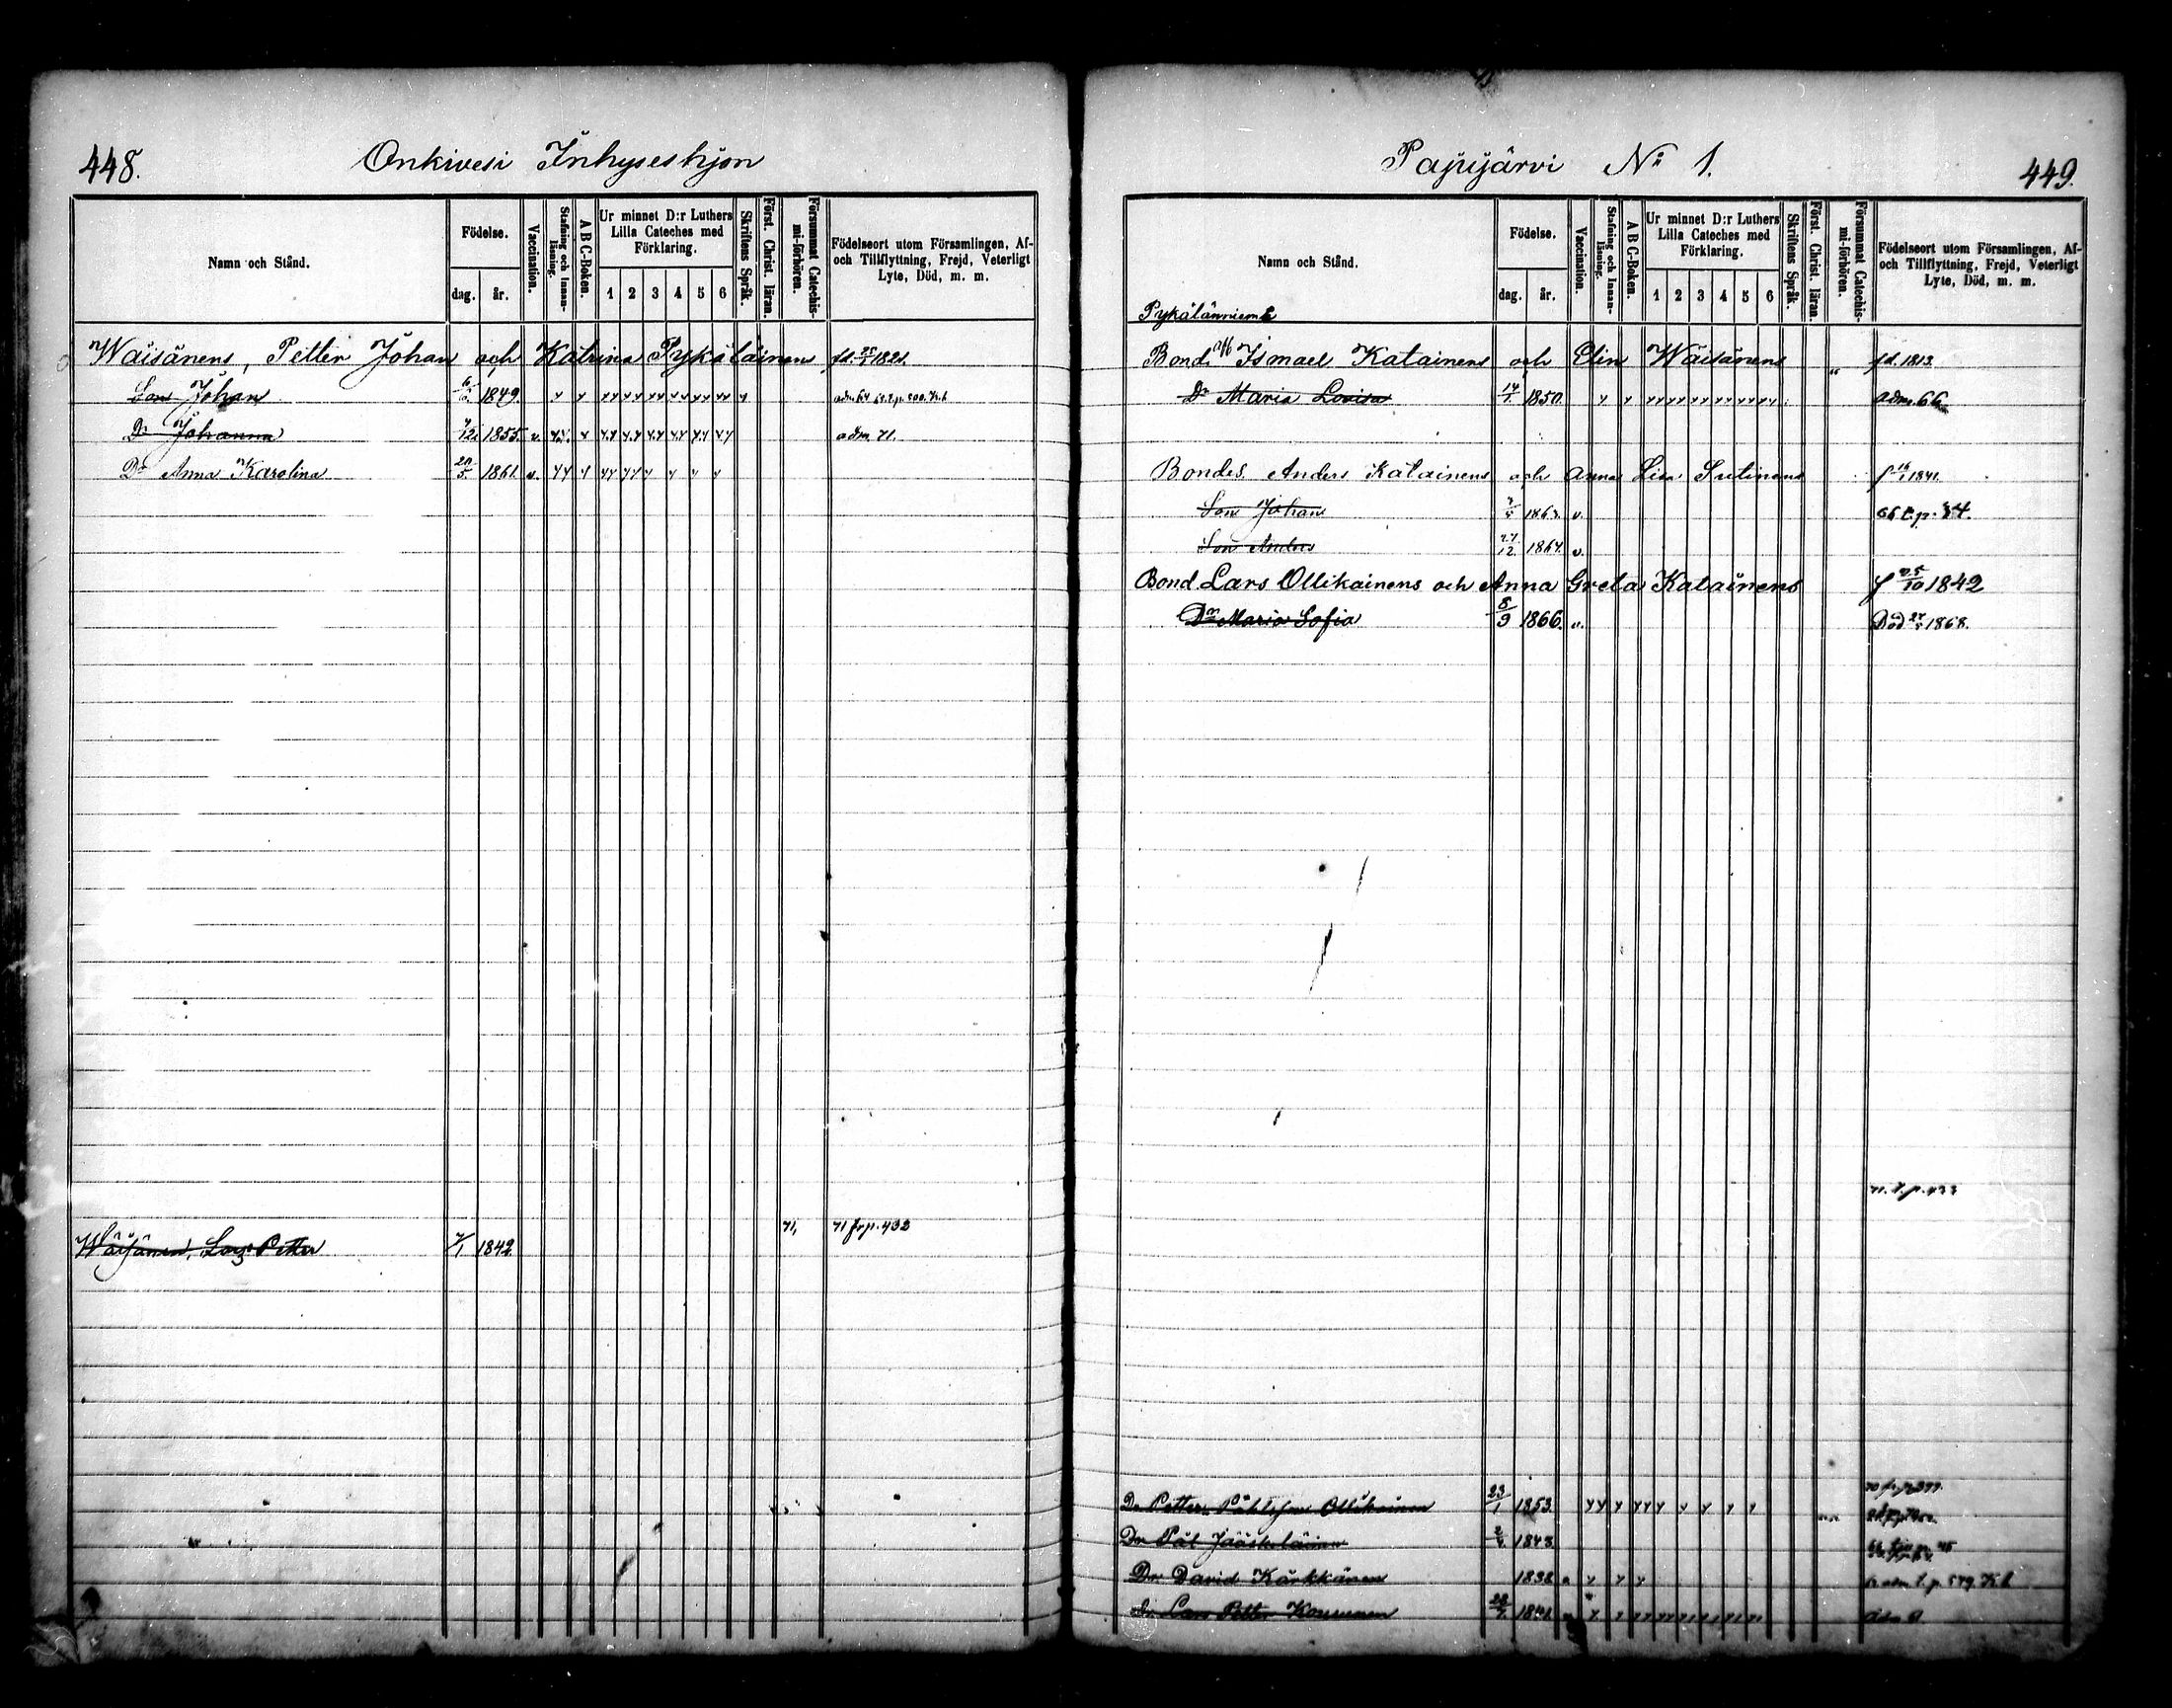 448. Onkivesi Inhyseshjon
Namn och Stånd. Födelse. dag. år. Vaccination. Stafning och Innan-läsning. A B C-Boken. Ur minnet D:r Luthers Lilla Cateches med Förklaring. 1 2 3 4 5 6 Skriftens Språk. Först. Christ. läran. Försummat Catechis-mi-förhören. Födelseort utom Församlingen, Af- och Tillflyttning, Frejd, Veterligt Lyte, Död, m. m.
Wäisänens, Petter Johan och Katrina Pykäläinens fd. 1821.
Son Johan 1849.
Dr Johanna 1855. v. adm 71.
Dr Anna Karolina 20/5 1861. v.
71, 71 frp. 432
Wäisänen, Lars Petter 1842
Pajujärvi No 1. 449.
Namn och Stånd. Födelse. dag. år. Vaccination. Stafning och Innan-läsning. A B C-Boken. Ur minnet D:r Luthers Lilla Cateches med Förklaring. 1 2 3 4 5 6 Skriftens Språk. Först. Christ. läran. Försummat Catechis-mi-förhören. Födelseort utom Församlingen, Af- och Tillflyttning, Frejd, Veterligt Lyte, Död, m. m.
Pykälänniemi
Bond. Ismael Katainens och Elin Wäisänens fd. 1813.
Dr Maria Lovisa 14/1 1850. adm. 66
Bondes Anders Katainens och Anna Lisa Sutinens f 1841.
Son Johan 1863. v. 66 t.p. 84.
Son Anders 27/12 1864. v.
Bond Lars Ollikainens och Anna Greta Katainens f 25/10 1842
Dr Maria Sofia 8/9 1866. v. Död 1868.
71. t. p. 433
Dr Petter Påhlsson Ollikainen 23/1 1853
Dr Pål Jääskeläinen 1843
Dr David Kärkkänen 1838 adm. t. p. 579. K.b
Dr Lars Petter